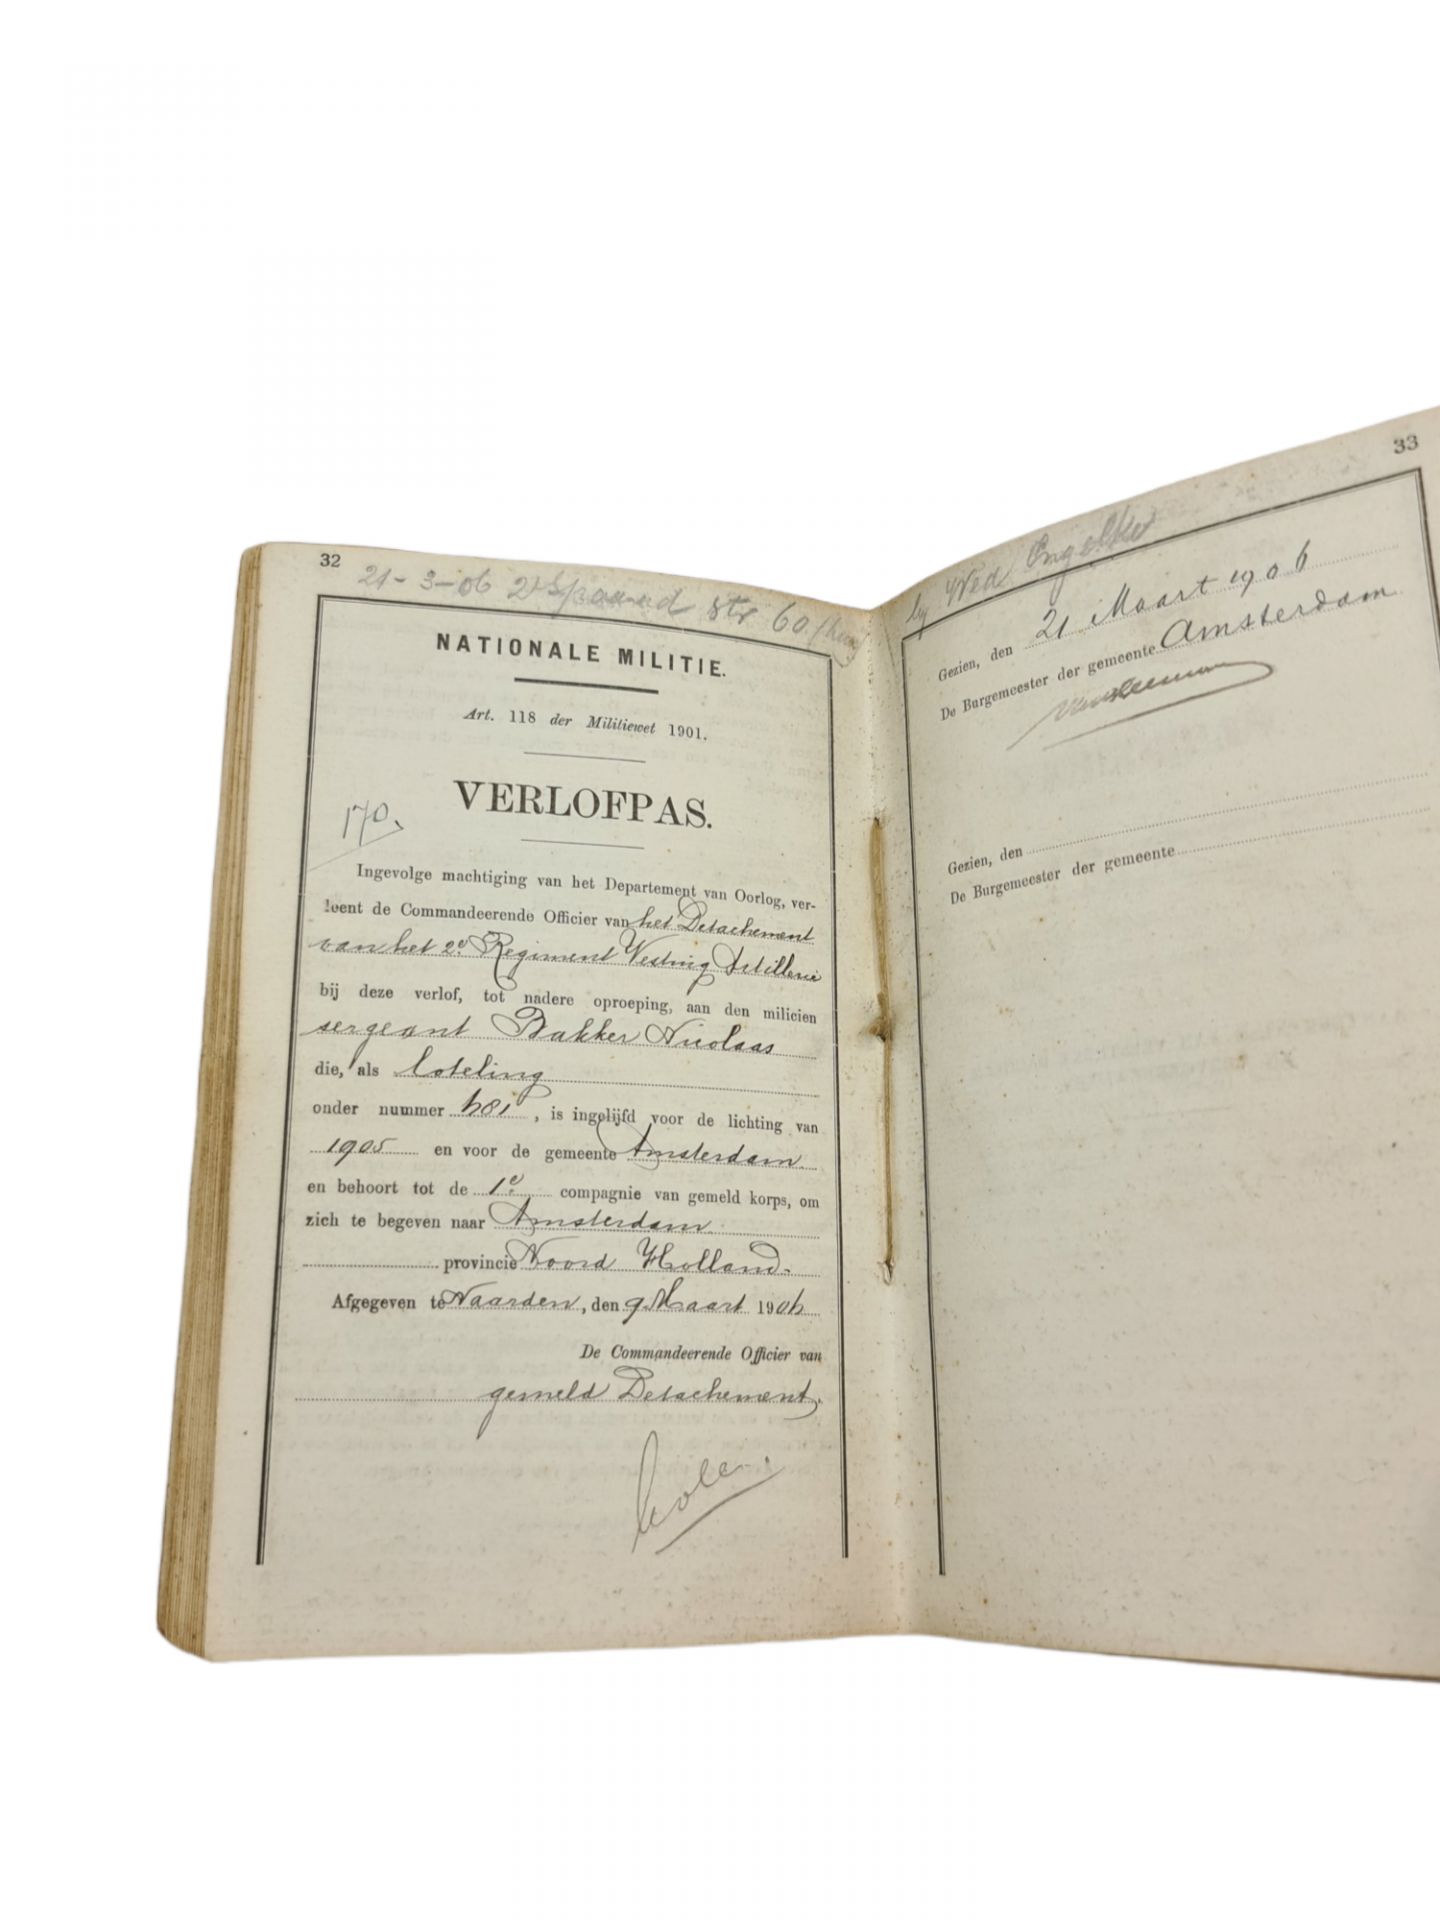 32
21-3-06 str 60
NATIONALE MILITIE.
Art. 118 der Militiewet 1901.
VERLOFPAS.
170.
Ingevolge machtiging van het Departement van Oorlog, ver-
leent de Commandeerende Officier van het Detachement
van het 2e Regiment Vesting Artillerie
bij deze verlof, tot nadere oproeping, aan den milicien
sergeant Bakker Nicolaas
die, als loteling
onder nummer , is ingelijfd voor de lichting van
1905 en voor de gemeente Amsterdam
en behoort tot de 1e compagnie van gemeld korps, om
zich te begeven naar Amsterdam
provincie Noord Holland.
Afgegeven te Naarden, den 9 Maart 1906
De Commandeerende Officier van
gemeld Detachement.
33
Wed
Gezien, den 21 Maart 1906
De Burgemeester der gemeente Amsterdam
Gezien, den
De Burgemeester der gemeente